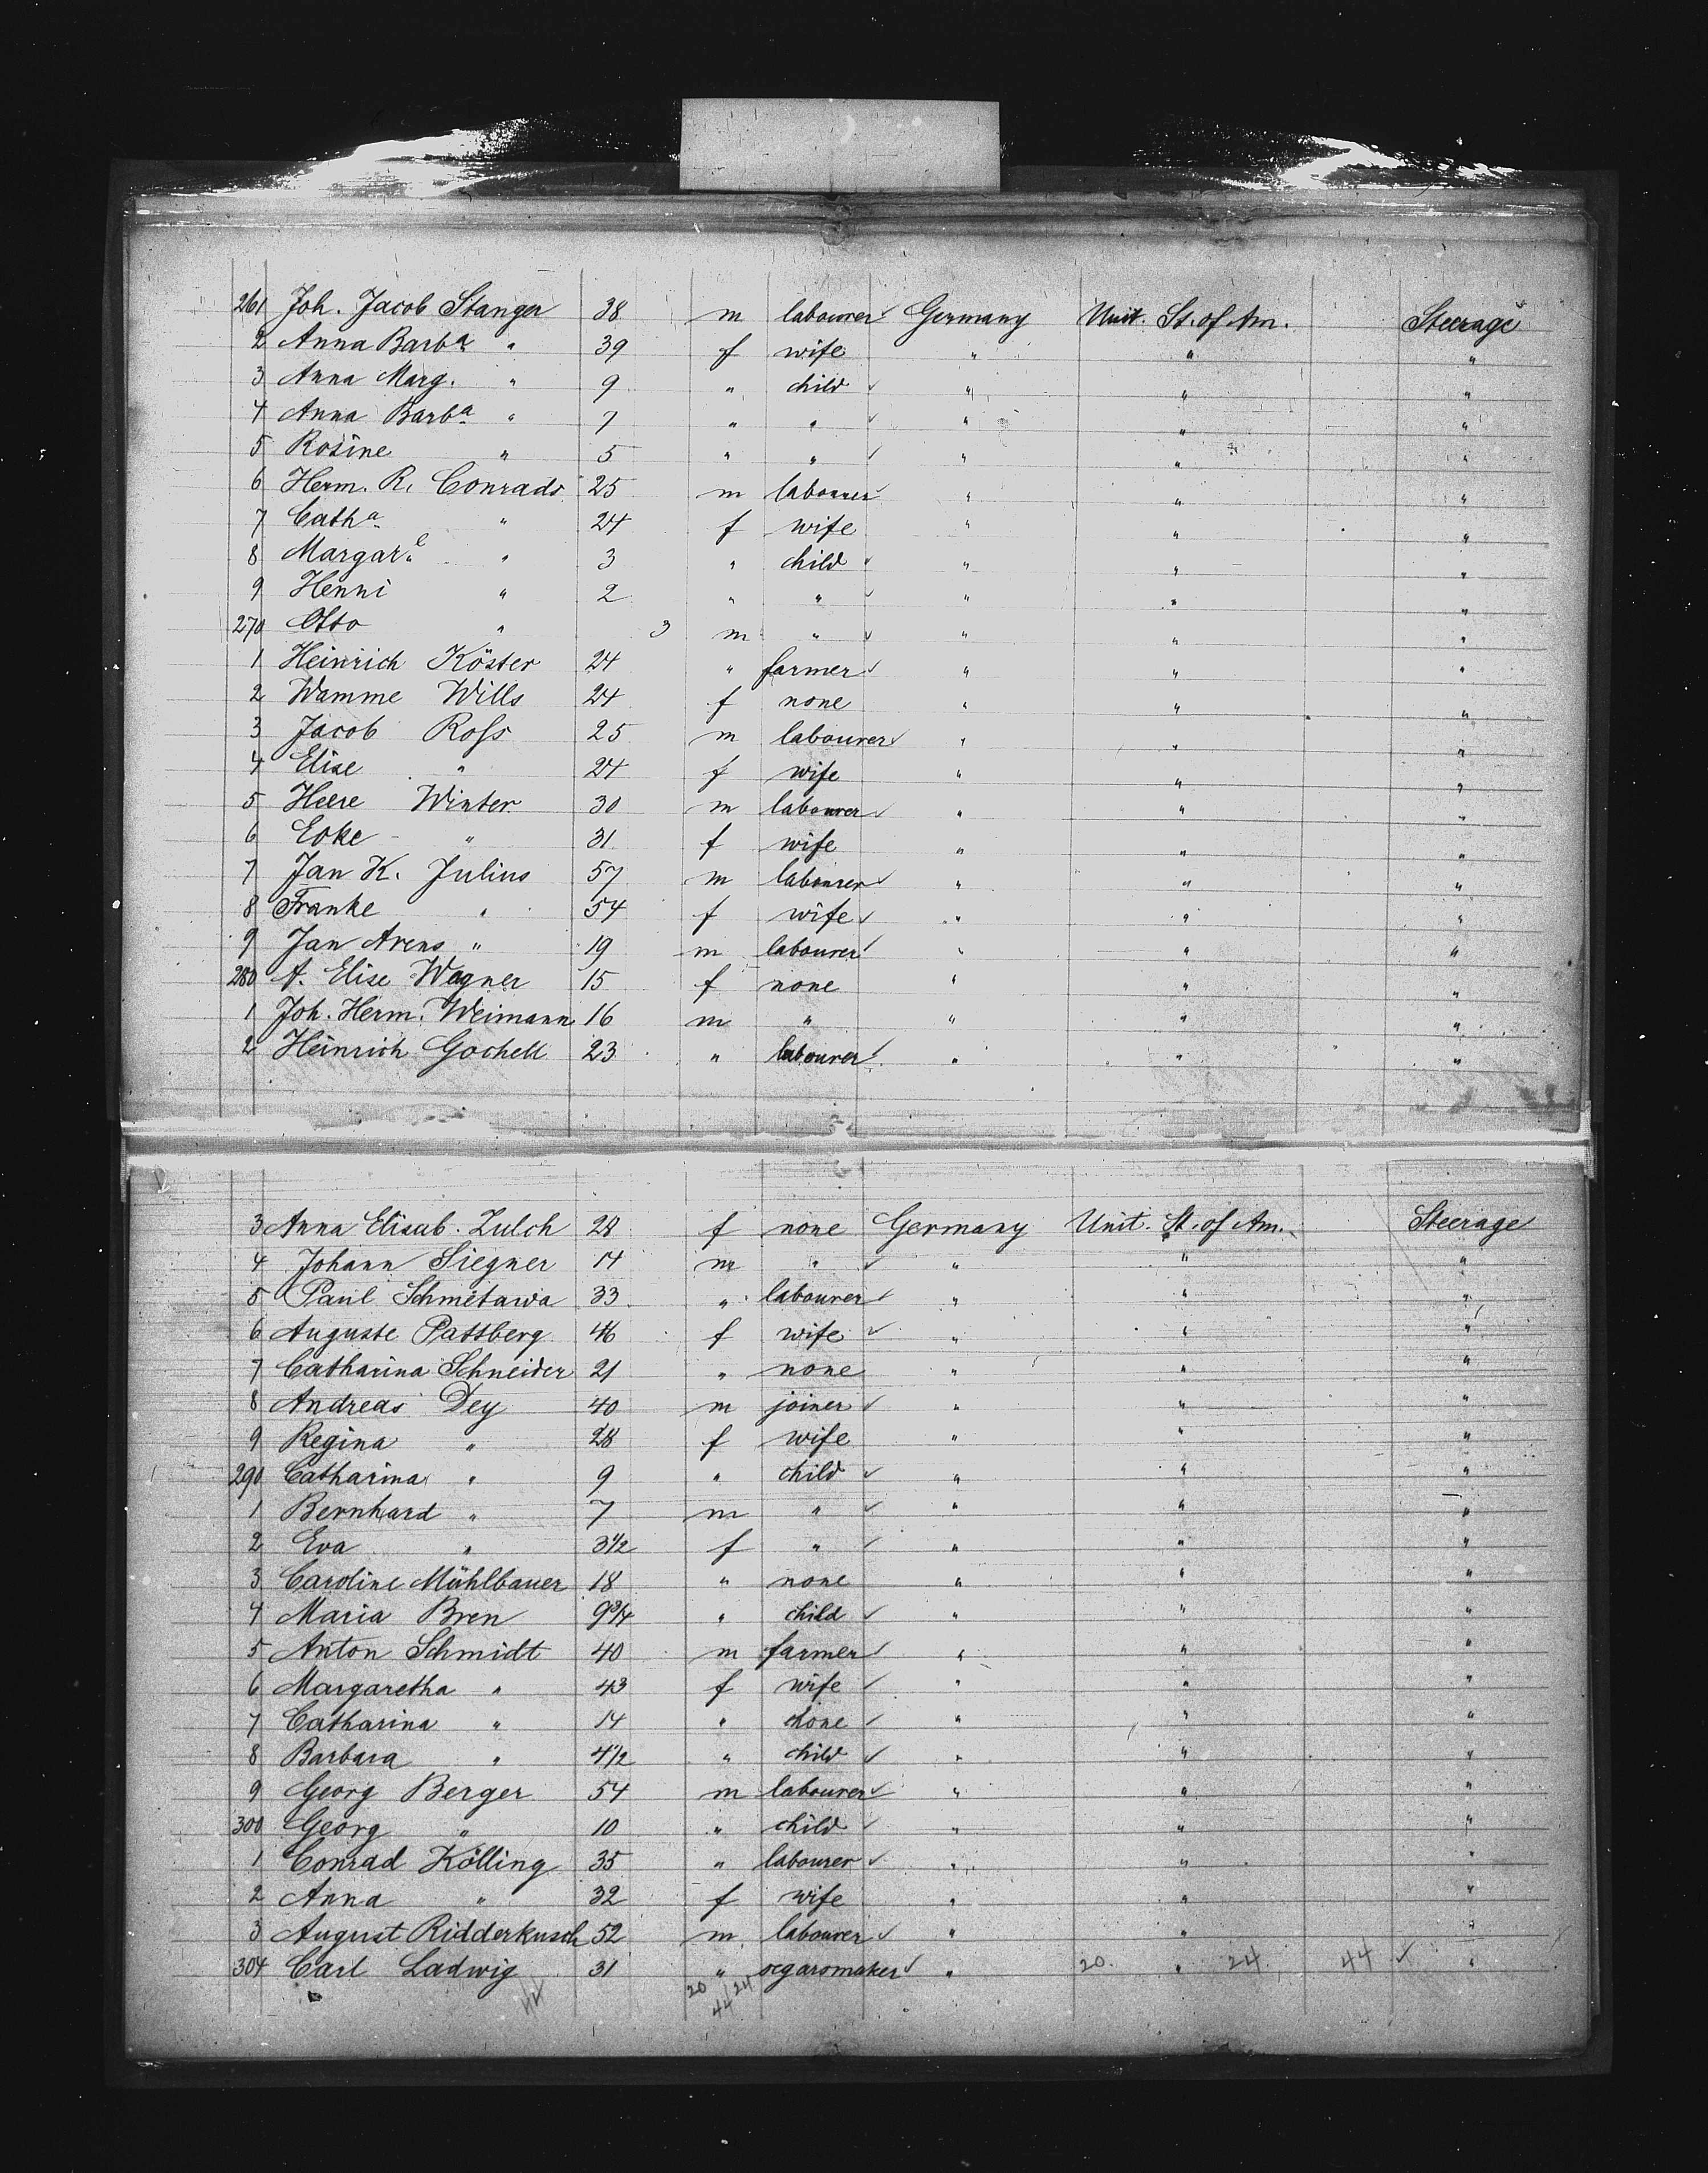 261 Joh. Jacob Stanger 38 m labourer ✓ Germany Unit. St. of Am. Steerage
2 Anna Barba " 39 f wife " " "
3 Anna Marg. " 9 " child ✓ " " "
4 Anna Barba " 7 " " ✓ " " "
5 Rosine " 5 " " ✓ " " "
6 Herm. R. Conrads 25 m labourer ✓ " " "
7 Catha " 24 f wife " " "
8 Margare " 3 " child ✓ " " "
9 Henni " 2 " " ✓ " " "
270 Otto " 3 m " ✓ " " "
1 Heinrich Köster 24 " farmer ✓ " " "
2 Wamme Wills 24 f none " " "
3 Jacob Roſs 25 m labourer ✓ " " "
4 Elise " 24 f wife " " "
5 Heere Winter 30 m labourer ✓ " " "
6 Eoke " 31 f wife " " "
7 Jan K. Julius 57 m labourer ✓ " " "
8 Franke " 54 f wife ✓ " " "
9 Jan Arens " 19 m labourer ✓ " " "
280 A. Elise Wagner 15 f none " " "
1 Joh. Herm. Weimann 16 m " " " "
2 Heinrich Gochell 23 " labourer ✓ " " "
3 Anna Elisab. Zulch 28 f none Germany Unit. St. of Am. Steerage
4 Johann Siegner 14 m " ✓ " " "
5 Paul Schmetawa 33 " labourer ✓ " " "
6 Auguste Pattberg 46 f wife ✓ " " "
7 Catharina Schneider 21 " none " " "
8 Andreas Dey 40 m joiner ✓ " " "
9 Regina " 28 f wife " " "
290 Catharina " 9 " child ✓ " " "
1 Bernhard " 7 m " ✓ " " "
2 Eva " 3 1/2 f " ✓ " " "
3 Caroline Mühlbauer 18 " none " " "
4 Maria Bren 9 3/4 " child ✓ " " "
5 Anton Schmidt 40 m farmer ✓ " " "
6 Margaretha " 43 f wife ✓ " " "
7 Catharina " 14 " none ✓ " " "
8 Barbara " 4 1/2 " child ✓ " " "
9 Georg Berger 54 m labourer ✓ " " "
300 Georg " 10 " child ✓ " " "
1 Conrad Kölling 35 " labourer ✓ " " "
2 Anna " 32 f wife " " "
3 August Ridderkusch 52 m labourer ✓ " " "
304 Carl Ladwig 31 " segarsmaker ✓ " 20 " 24 44 ✓ "
44 20 24
44